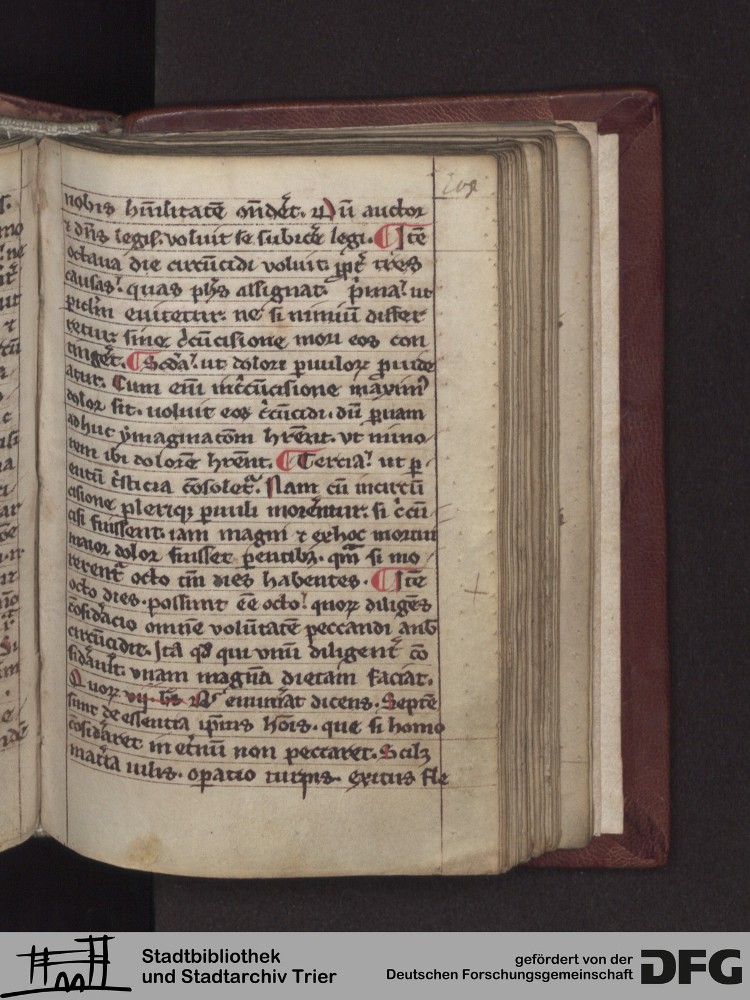 nobis hūilitatē ōnder̄et. Dū auctor
⁊ dn̄s legis. voluit se subice᷑ legi. ¶ Itē
octaua die circūcidi voluit. ꝓpt᷑ tres
causas. quas ph̄s assignat. p̄ma. ut
ꝑiclm̄ euitetur. ne si nimiū differ
retur. sine c̄cūcisione mori eos con
tinget. ¶ Scd̓a. ut dolori ꝑuulorꝝ ꝓuide
atur. Cum em̄ in c̄cūcisione maxim᷒
dolor sit. uoluit eos c̄cūcidi. dū ꝑuam
adhuc ymaginatōm hr̄ent. vt mino
rem ibi dolorē hr̄ent. ¶ Tercia. ut ꝑ
entū t̄sticia cōsolet᷑. Nam cū in circū
cisione pleriqꝫ ꝑuuli morētur. si c̄cū
cisi fuissent. iam magni ⁊ ex hoc mortui
maior dolor fuisset ꝑentibꝫ. qm̄ si mo
rerent᷑ octo tm̄ dies habentes. ¶ Itē
octo dies. possunt ēe octo. quorꝝ diligēs
cōsid̓acio omnē volūtatē peccandi anī
circūcidit. Ita qd̓ qui vnū diligent᷑ cō
sid̓auit. vnam magnā dietam faciat.
Quorꝝ vij enum̄at dicens. Septē
sunt de essentia ip̄ius hōis. que si homo
cōsid̓aret in et̓nū non peccaret. Scilꝫ
mat̓ia uilis. oꝑatio turpis. exitus fle
Stadtbibliothek
und Stadtarchiv Trier
gefördert von der
Deutschen Forschungsgemeinschaft
DFG